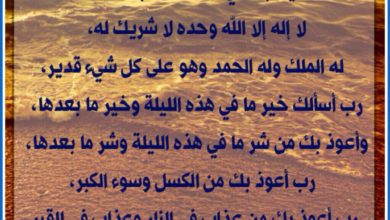 لا إله إلا الله وحده لا شريك له،
له الملك وله الحمد وهو على كل شيء قدير،
رب أسألك خير ما في هذه الليلة وخير ما بعدها،
وأعوذ بك من شر ما في هذه الليلة وشر ما بعدها،
رب أعوذ بك من الكسل وسوء الكبر،
رب أعوذ بك من عذاب في النار وعذاب في القبر